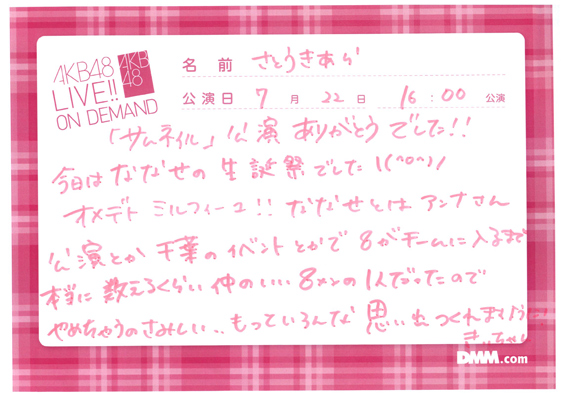 AKB48
LIVE!!
ON DEMAND
AKB
48
名前 さとうきあら
公演日 7月22日 16:00 公演
「サムネイル」公演 ありがとうでした!!
今日は ななせの 生誕祭でした \(^o^)/
オメデト ミルフィーユ!! ななせとは アンナさん
公演とか 千葉のイベントとかで 8がチームに入るまで
本当に 数えるくらい 仲のいい 8メンの1人だったので
やめちゃうのさみしい.. もっていろんな 思い出つくれますように
きぃちゃん
DMM.com